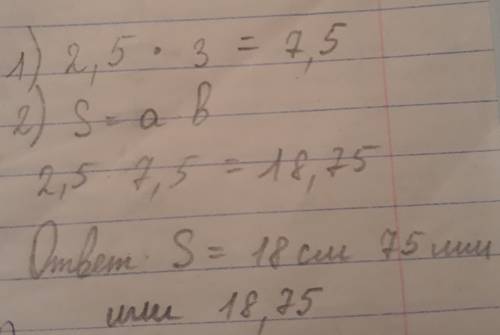 1) 2,5 · 3 = 7,5
2) S = a b
2,5 7,5 = 18,75
Ответ. S = 18 см 75 мм
или 18,75